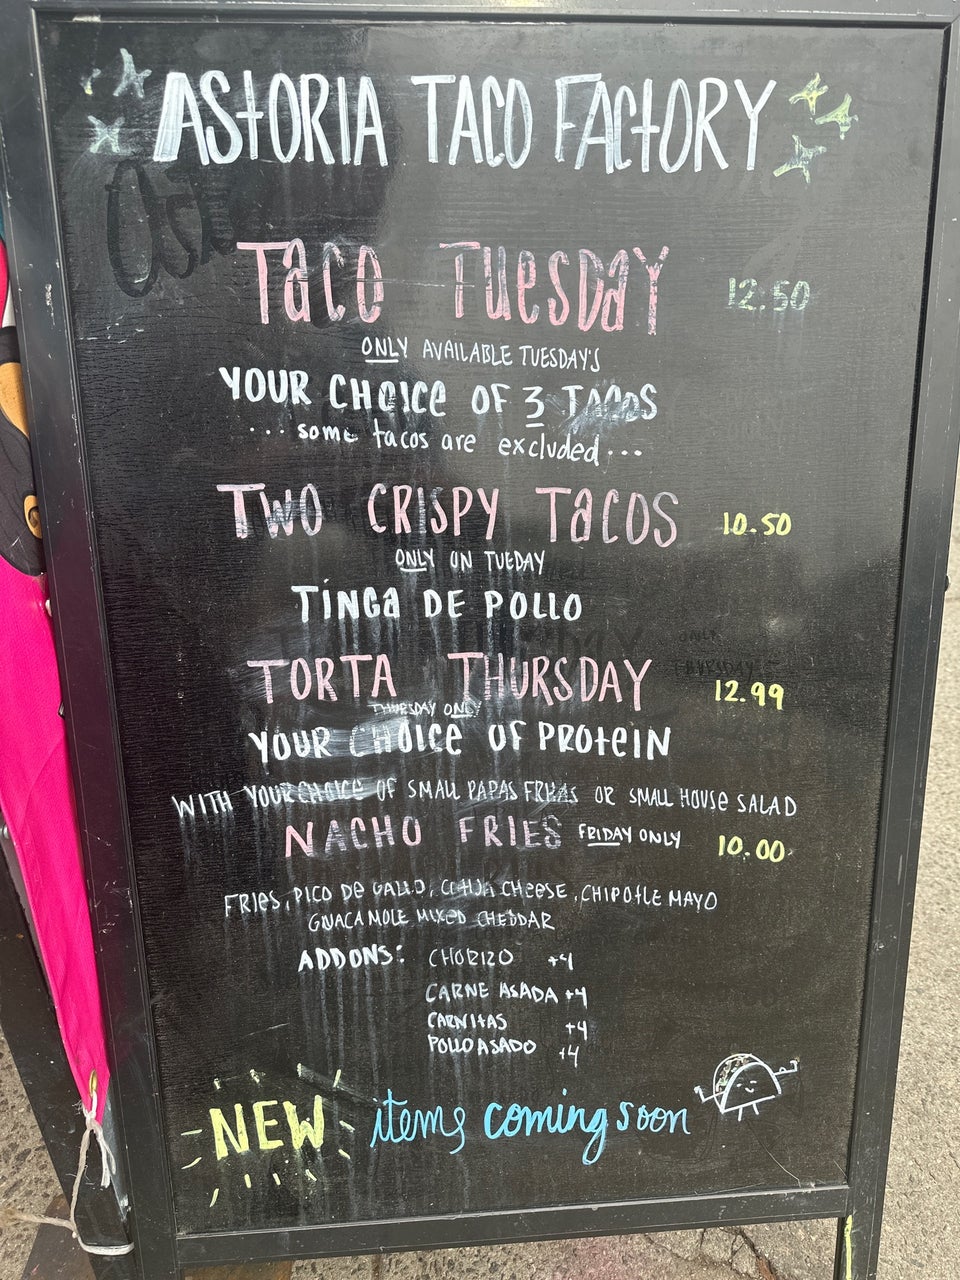 ASTORIA TACO FACTORY
TACO TUESDAY 12.50
ONLY AVAILABLE TUESDAY'S
YOUR CHOICE OF 3 TACOS
... some tacos are excluded...
TWO CRISPY TACOS 10.50
ONLY ON TUEDAY
TINGA DE POLLO
TORTA THURSDAY 12.99
THURSDAY ONLY
YOUR CHOICE OF PROTEIN
WITH YOUR CHOICE OF SMALL PAPAS FRITAS OR SMALL HOUSE SALAD
NACHO FRIES FRIDAY ONLY 10.00
FRIES, PICO DE GALLO, COTIJA CHEESE, CHIPOTLE MAYO
GUACAMOLE MIXED CHEDDAR
ADDONS: CHORIZO +4
CARNE ASADA +4
CARNITAS +4
POLLO ASADO +4
NEW items coming soon